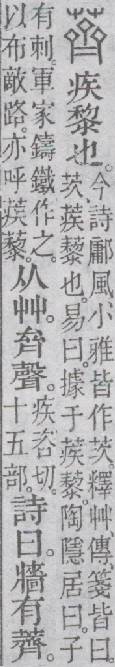 薺 疾黎也。
今詩鄘風、小雅皆作茨。釋艸、傳、箋皆曰
茨、蒺藜也。易曰。據于蒺藜。陶隱居曰。子
有刺。軍家鑄鐵作之。
以布敵路。亦呼蒺藜。
从艸。齊聲。
疾咨切。
十五部。
詩曰。牆有薺。